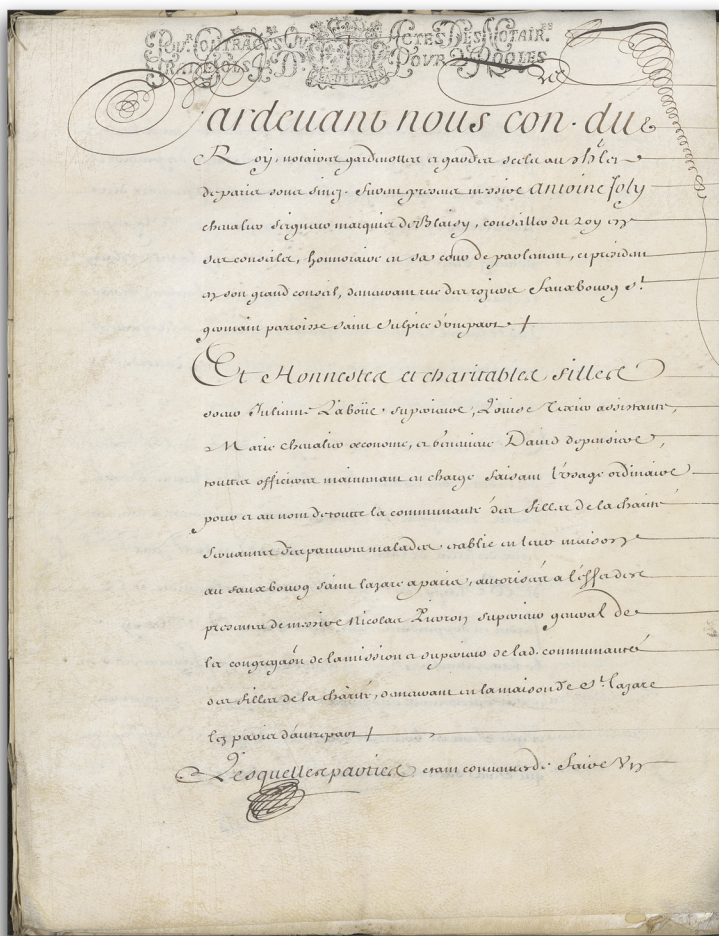 POUR CONTRACTS OU ACTES DES NOTAIRES
POUR ROOLES
Pardevant nous con. du
Roy, notaires gardenottes et gardes scels au Ch.let
de paris sous sinez. furent presens messire Antoine Joly
chevalier seigneur marquis de Blaisy, conseiller du roy en
ses conseils, honnoraire en sa cour de parlement, et president
en son grand conseil, demeurant rue des rosiers fauxbourg St
germain parroisse saint sulpice d'une part
Et Honnestes et charitables filles
soeur Julienne Laboüe superieure, Louise assistante,
Marie Chevalier oeconome, et David depensiere,
touttes officieres maintenant en charge faisant l'usage ordinaire
pour et au nom de toutte la communauté des filles de la charité
servantes des pauvres malades establie en leur maison
au fauxbourg saint lazare a paris, autorisées a l'effet des
presentes de messire Nicolas Pierron superieur general de
la congregaôn de la mission et superieur de lad. communauté
des filles de la charité, demeurant en la maison de St lazare
lez paris d'autre part
Lesquelles parties etant convenues de faire un